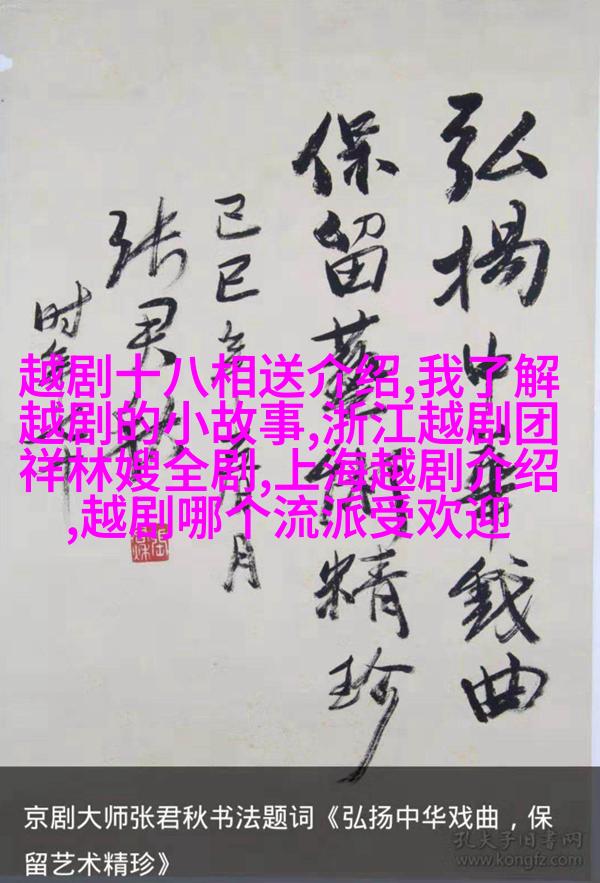 弘揚中華戲曲
保留藝術精珍
己巳月
张君秋
时年
越剧十八相送介绍,我了解
越剧的小故事,浙江越剧团
祥林嫂全剧,上海越剧介绍
,越剧哪个流派受欢迎
京剧大师张君秋书法题词《弘扬中华戏曲，保
留艺术精珍》
孔夫子旧书网
www.kongfz.com